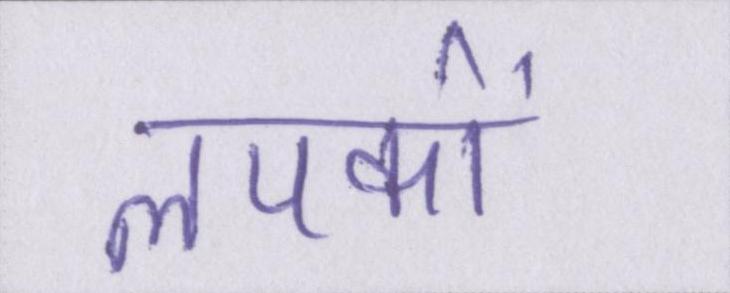 लपकों